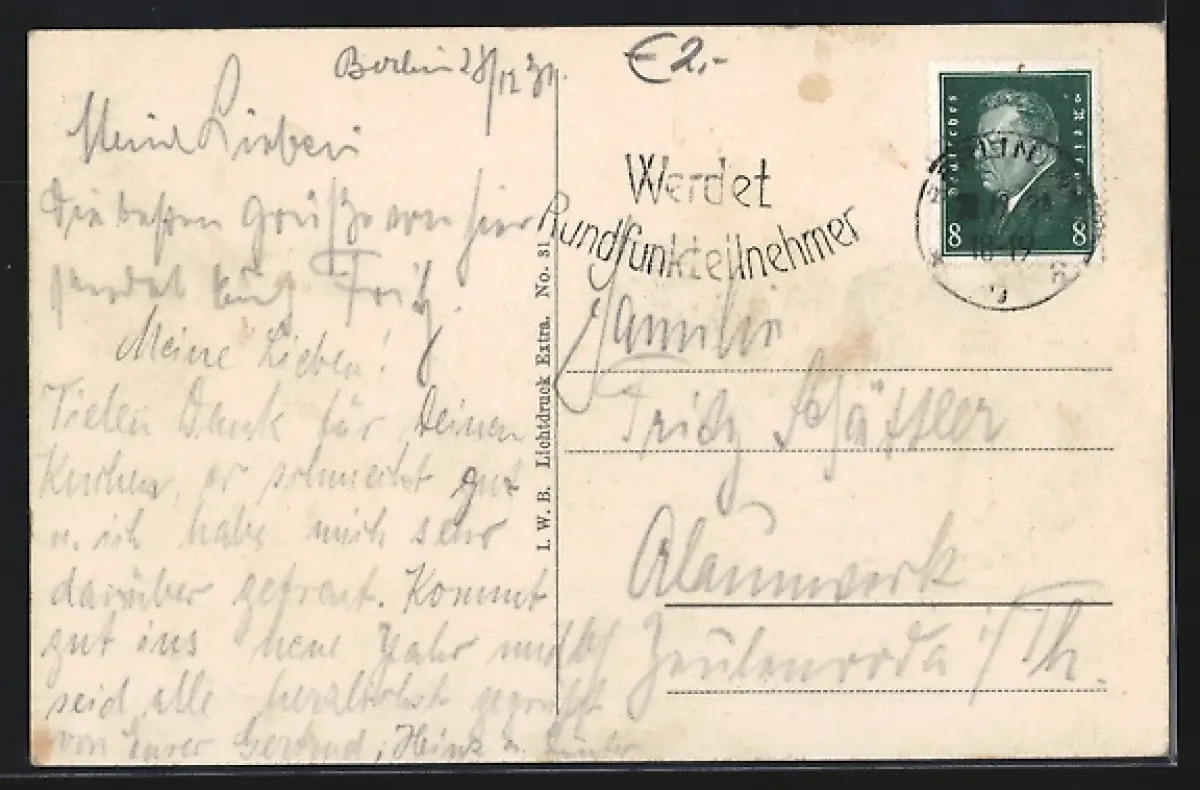 Berlin 28/12 31.
€2,-
Meine Lieben
Die besten Grüße von hier
sendet Euch Fritz.
Meine Lieben!
Vielen Dank für Deinen
Kuchen, er schmeckt gut
u. ich habe mich sehr
darüber gefreut. Kommt
gut ins neue Jahr und
seid alle herzlichst gegrüßt
von Eurer Gertrud, Heinz u. Günter
I. W. B. Lichtdruck Extra. No. 31
Werdet
Rundfunkteilnehmer
Deutsches Reich
8 8
BERLIN
18-19
Familie
Fritz Schäffler
Alaunwerk
Zeulenroda i/Th.